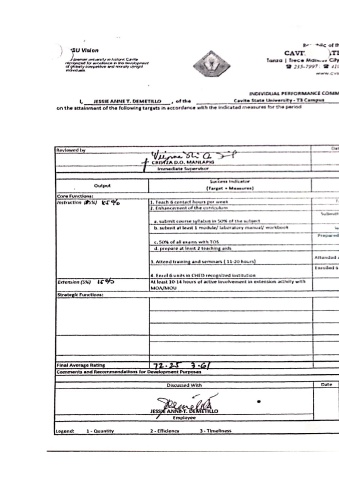 SU Vision
Premier university in historic Cavite
recognized for excellence in the development
of globally competitive and morally upright
individuals
Tanza | Trece
INDIVIDUAL PERFORMANCE COMM
I, JESSIE ANNE T. DEMETILLO, of the Cavite State University - T3 Campus
on the attainment of the following targets in accordance with the indicated measures for the period
Reviewed by
CRISTZA D.O. MANLAPIG
Immediate Supervisor
Output
Success Indicator
(Target + Measures)
Core Functions:
Instruction
1. Teach 6 contact hours per week
2. Enhancement of the curriculum
a. submit course syllabus in 50% of the subject
b. submit at least 1 module/ laboratory manual/ workbook
c. 50% of all exams with TOS
d. prepare at least 2 teaching aids
3. Attend training and seminars ( 11-20 hours)
Attended
4. Enroll 6 units in CHED recognized institution
Enrolled
Extension (5%) 15%
At least 10-14 hours of active involvement in extension activity with
MOA/MOU
Strategic Functions:
Final Average Rating 72.25 3.61
Comments and Recommendations for Development Purposes
Discussed With
Date
JESSIE ANNE T. DEMETILLO
Employee
Legend: 1 - Quantity 2 - Efficiency 3 - Timeliness